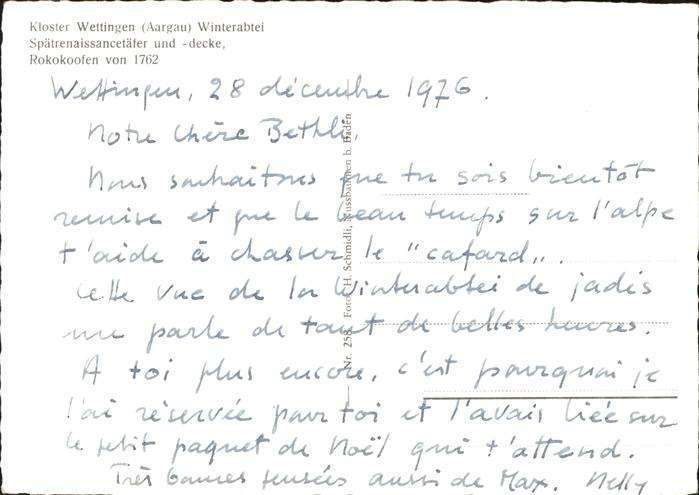 Kloster Wettingen (Aargau) Winterabtei
Spätrenaissancetäfer und -decke,
Rokokoofen von 1762
Wettingen, 28 décembre 1976.
Notre chère Bethli,
Nous souhaitons que tu sois bientôt
remise et que le beau temps sur l'alpe
t'aide à chasser le "cafard".
Cette vue de la Winterabtei de jadis
me parle de tant de belles heures.
A toi plus encore, c'est pourquoi je
l'ai réservée pour toi et l'avais liée sur
le petit paquet de Noël qui t'attend.
Très bonnes pensées aussi de Max. Nelly
Nr. 258 Foto H. Schmidli, Nussbaumen b. Baden